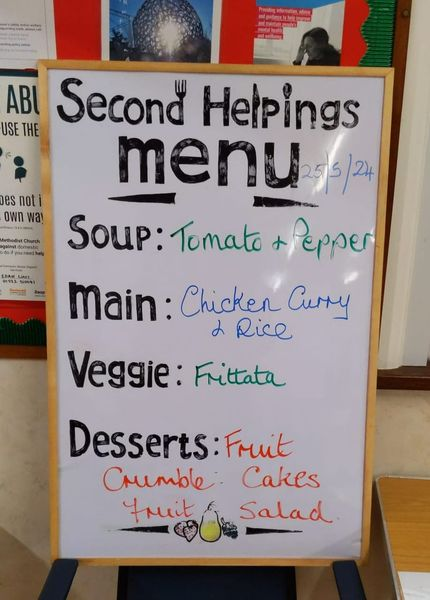 Providing information, advice
and guidance to help improve
and maintain people's
mental health
and wellbeing
ABU
USE THE
oes not i
s own way
Methodist Church
against domestic
Second Helpings
menu
25/5/24
Soup: Tomato + Pepper
Main: Chicken Curry
& Rice
Veggie: Frittata
Desserts: Fruit
Crumble Cakes
Fruit Salad